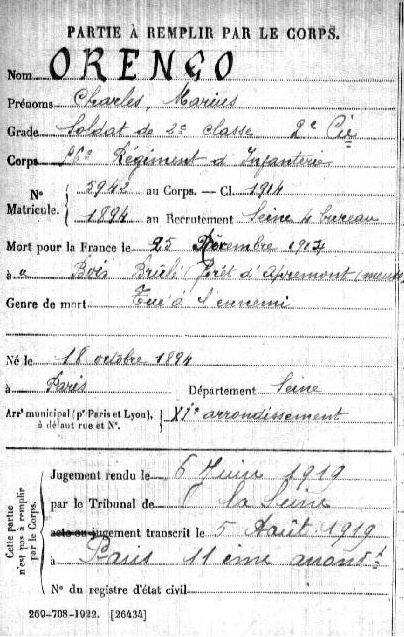 PARTIE À REMPLIR PAR LE CORPS.
Nom ORENGO
Prénoms Charles, Marius
Grade Soldat de 2e classe 2e Cie
Corps Régiment d'Infanterie
N° Matricule. { 5942 au Corps. — Cl. 1914
1894 au Recrutement Seine 4e bureau
Mort pour la France le 25 Décembre 1914
à " Bois Brûlé Forêt d'Apremont (meuse)
Genre de mort Tué à l'ennemi
Né le 18 octobre 1894
à Paris Département Seine
Arrt municipal (pr Paris et Lyon), à défaut rue et N°. } XIe arrondissement
Cette partie n'est pas à remplir par le Corps.
Jugement rendu le 6 Juin 1919
par le Tribunal de la Seine
acte ou jugement transcrit le 5 Août 1919
à Paris 11 ème arrondt
N° du registre d'état civil
260-708-1922. [26434]